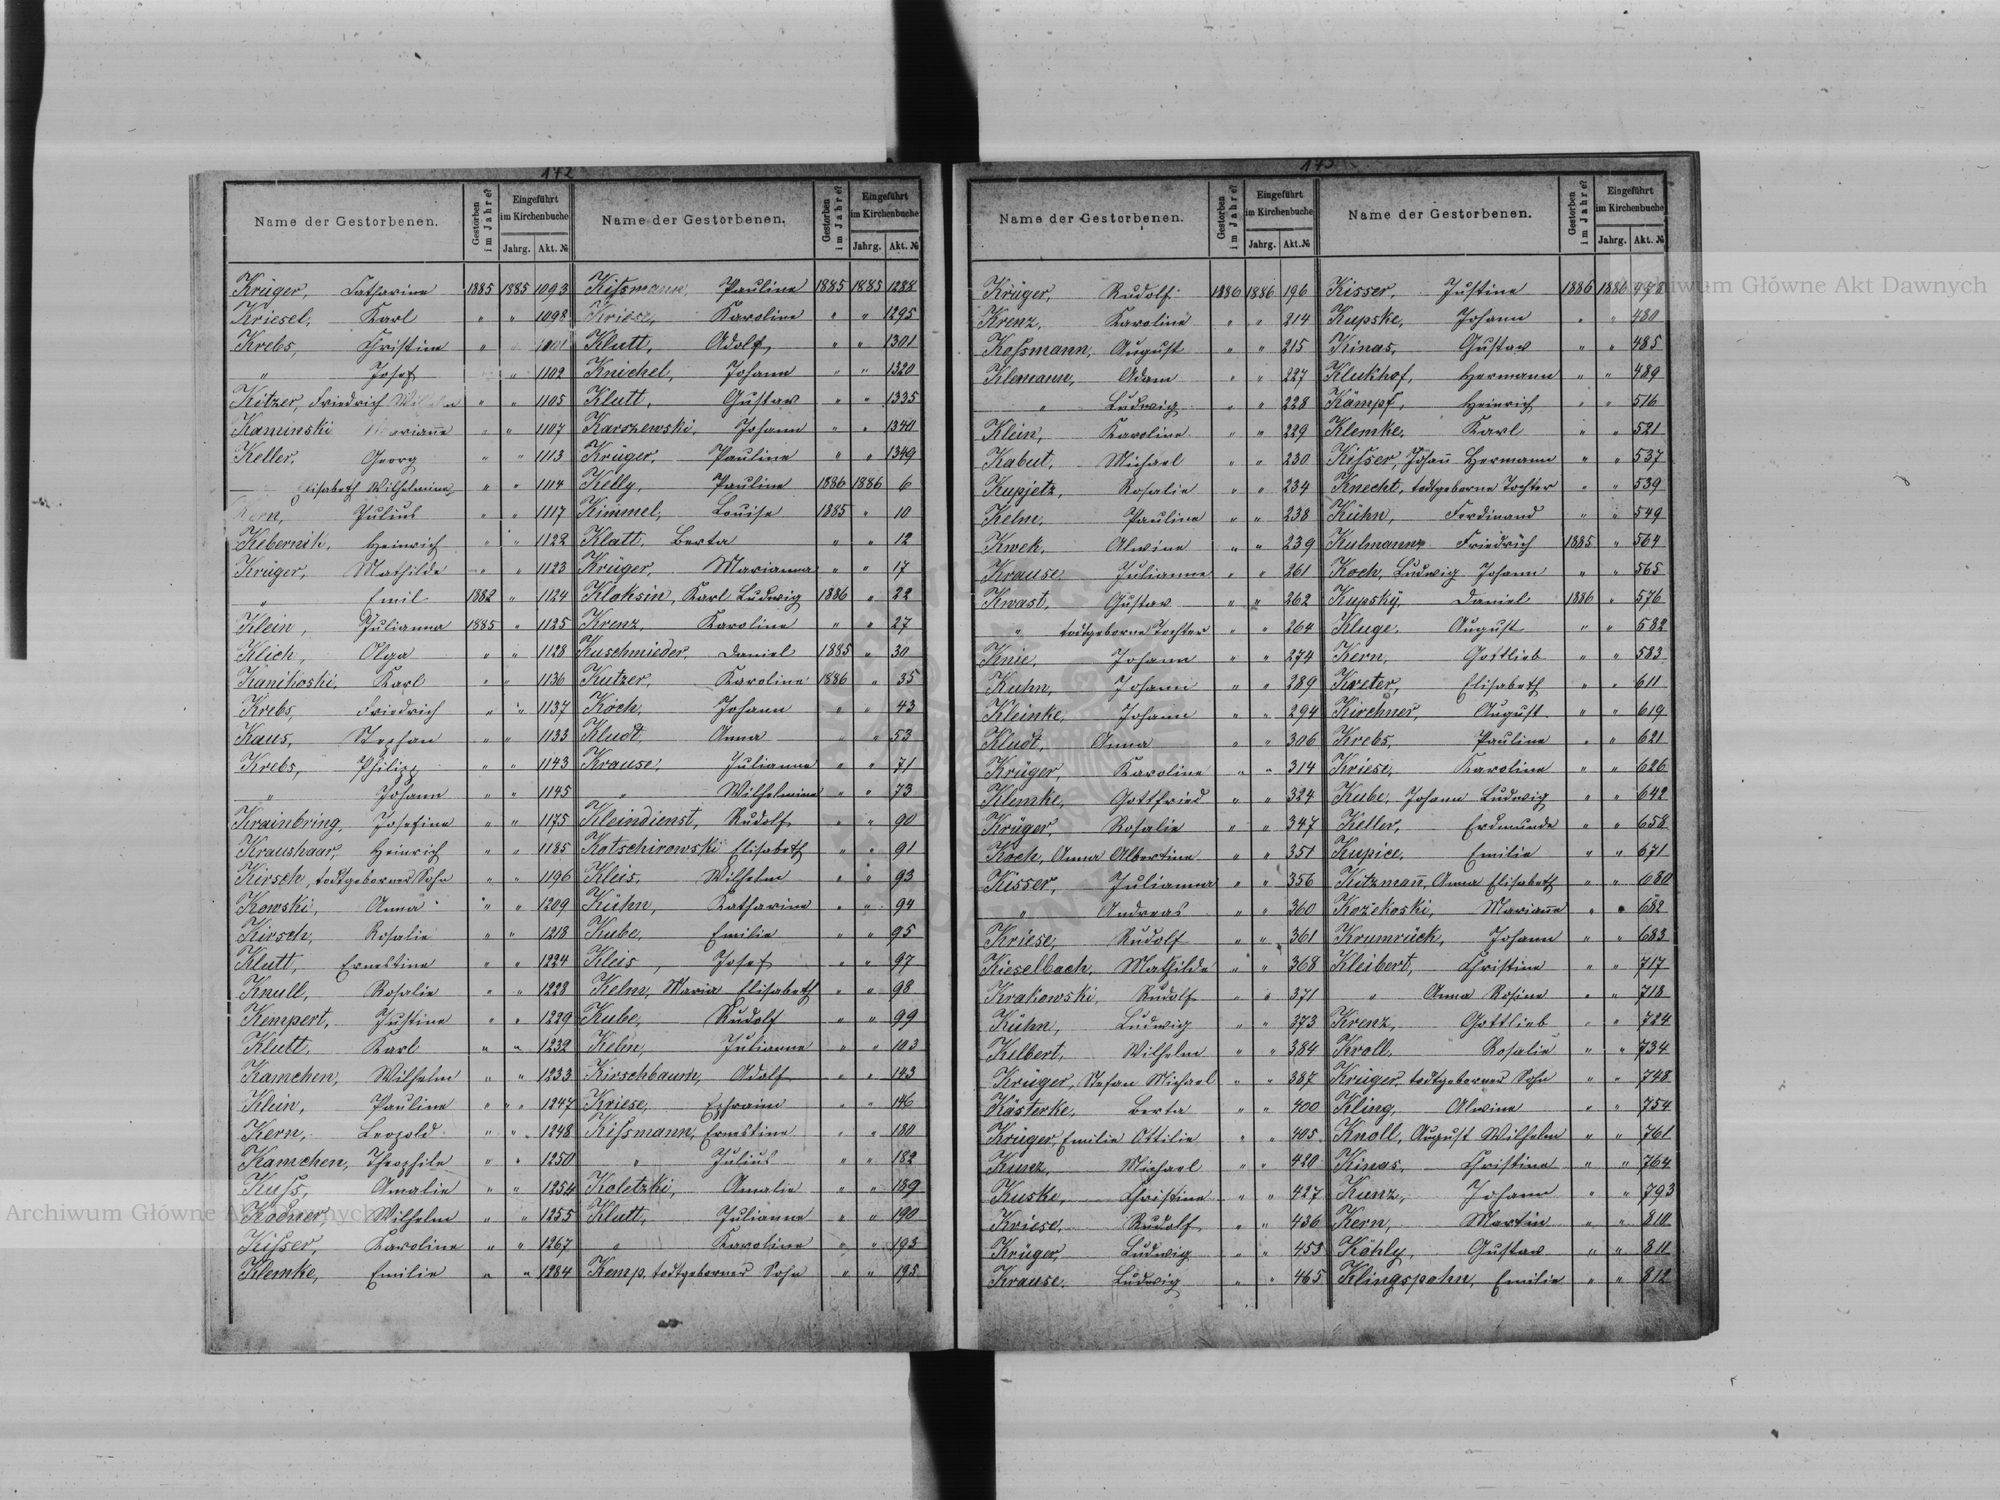 172
Name der Gestorbenen. Gestorben im Jahre? Eingeführt im Kirchenbuche Jahrg. Akt. №
Krüger, Catharine 1885 1885 1093
Kriesel, Karl " " 1098
Krebs, Christine "
" Josef " 1102
Kitzer, Friedrich Wilhelm " " 1105
Kaminski Marianne " " 1107
Keller, Georg " " 1113
— Elisabeth Wilhelmine " " 1114
Julius " " 1117
Kebernik, Heinrich " " 1122
Krüger, Mathilde " " 1123
" Emil 1882 " 1124
Klein, Julianna 1885 " 1125
Klich, Olga " " 1128
Kanikoski, Karl " " 1136
Krebs, Friedrich " " 1137
Kaus, Stephan " " 1133
Krebs, Philipp " " 1143
" Johann " " 1145
Krainbring, Josefine " " 1175
Kraushaar, Heinrich " " 1185
Kirsch, todtgeborner Sohn " " 1196
Kowski, Anna " " 1209
Kirsch, Rosalie " " 1218
Klutt, Ernestine " " 1224
Knull, Rosalie " " 1228
Kempert, Justine " " 1229
Klutt, Karl " " 1232
Kamchen, Wilhelm " " 1233
Klein, Pauline " " 1247
Kern, Leopold " " 1248
Kamchen, Theophile " " 1250
Kuss, Amalie " " 1254
Wilhelm " " 1255
Kisser, Karoline " " 1267
Klemke, Emilie " " 1284
Name der Gestorbenen. Gestorben im Jahre? Eingeführt im Kirchenbuche Jahrg. Akt. №
Kissmann, Pauline 1885 1885 1288
Karoline " " 1295
Klutt, Adolf " " 1301
Knichel, Johann " " 1320
Klutt, Gustav " " 1335
Karszewski, Johann " " 1340
Krüger, Pauline " " 1349
Kelly, Pauline 1886 1886 6
Kimmel, Louise 1885 " 10
Klatt, Berta " " 12
Krüger, Marianna " " 17
Kloksin, Karl Ludwig 1886 " 22
Krenz, Karoline " " 27
Kuschmieder Daniel 1885 " 30
Kutzer, Karoline 1886 " 35
Koch, Johann " " 43
Kludt, Anna " " 53
Krause, Julianne " " 71
" Wilhelmine " " 73
Kleindienst, Rudolf " " 90
Kotschirowski Elisabeth " " 91
Kleis, Wilhelm " " 93
Kühn, Katharine " " 94
Kube, Emilie " " 95
Kleis, Josef " " 97
Kelm, Maria Elisabeth " " 98
Kube, Rudolf " " 99
Kelm, Julianne " " 103
Kirschbaum, Adolf " " 143
Kriese, Ephraim " " 146
Kissmann, Ernestine " " 180
" Julius " " 182
Koletzki, Amalie " " 189
Klutt, Julianne " " 190
" Karoline " " 193
Kemp, todtgeborner Sohn " " 195
173
Name der Gestorbenen. Gestorben im Jahre? Eingeführt im Kirchenbuche Jahrg. Akt. №
Krüger, Rudolf 1886 1886 196
Krenz, Karoline " " 214
Kossmann, August " " 215
Klemann, Adam " " 227
" Ludwig " " 228
Klein, Karoline " " 229
Kabut, Michael " " 230
Kupjetz, Rosalie " " 234
Kelm, Pauline " " 238
Kwek, Alwine " " 239
Krause, Julianne " " 261
Kwast, Gustav " " 262
" todtgeborne Tochter " " 264
Knie, Johann " " 274
Kuhn, Johann " " 289
Kleinke, Johann " " 294
Kludt, Anna " " 306
Krüger, Karoline " " 314
Klemke, Gottfried " " 324
Krüger, Rosalie " " 347
Koch, Anna Albertine " " 351
Kisser, Julianna " " 356
" Andreas " " 360
Kriese, Rudolf " " 361
Kieselbach, Mathilde " " 368
Krakowski, Rudolf " " 371
Kühn, Ludwig " " 373
Kelbert, Wilhelm " " 384
Krüger, Stefan Michael " " 387
Kästerke, Berta " " 400
Krüger, Emilie Ottilie " " 405
Kunz, Michael " " 420
Kuske, Christine " " 427
Kriese, Rudolf " " 436
Krüger, Ludwig " " 453
Krause, Ludwig " " 465
Name der Gestorbenen. Gestorben im Jahre? Eingeführt im Kirchenbuche Jahrg. Akt. №
Kisser, Justine 1886 1886 478
Kupske, Johann " " 480
Kinas, Gustav " " 485
Klukhof, Hermann " " 489
Kämpf, Heinrich " " 516
Klemke, Karl " " 521
Kisser, Johañ Hermann " " 537
Knecht, todtgeborne Tochter " " 539
Kühn, Ferdinand " " 549
Kulmann, Friedrich 1885 " 564
Koch, Ludwig Johann " " 565
Kupsky, Daniel 1886 " 576
Kluge, August " " 582
Kern, Gottlieb " " 583
Kreter, Elisabeth " " 611
Kirchner, August " " 619
Krebs, Pauline " " 621
Kriese, Karoline " " 626
Kube, Johann Ludwig " " 642
Keller, Erdmunde " " 658
Kupice, Emilie " " 671
Kitzmañ, Anna Elisabeth " " 680
Kozekoski, Mariañe " " 682
Krumrück, Johann " " 683
Kleibert, Christine " " 717
" Anna Rosine " " 718
Krenz, Gottlieb " " 724
Kroll, Rosalie " " 734
Krüger, todtgeborner Sohn " " 748
Kling, Alwine " " 754
Knoll, August Wilhelm " " 761
Kinas, Christine " " 764
Kunz, Johann " " 793
Kern, Martin " " 810
Köhly, Gustav " " 811
Klingspohn, Emilie " " 812
Archiwum Główne Akt Dawnych
Archiwum Główne Akt Dawnych